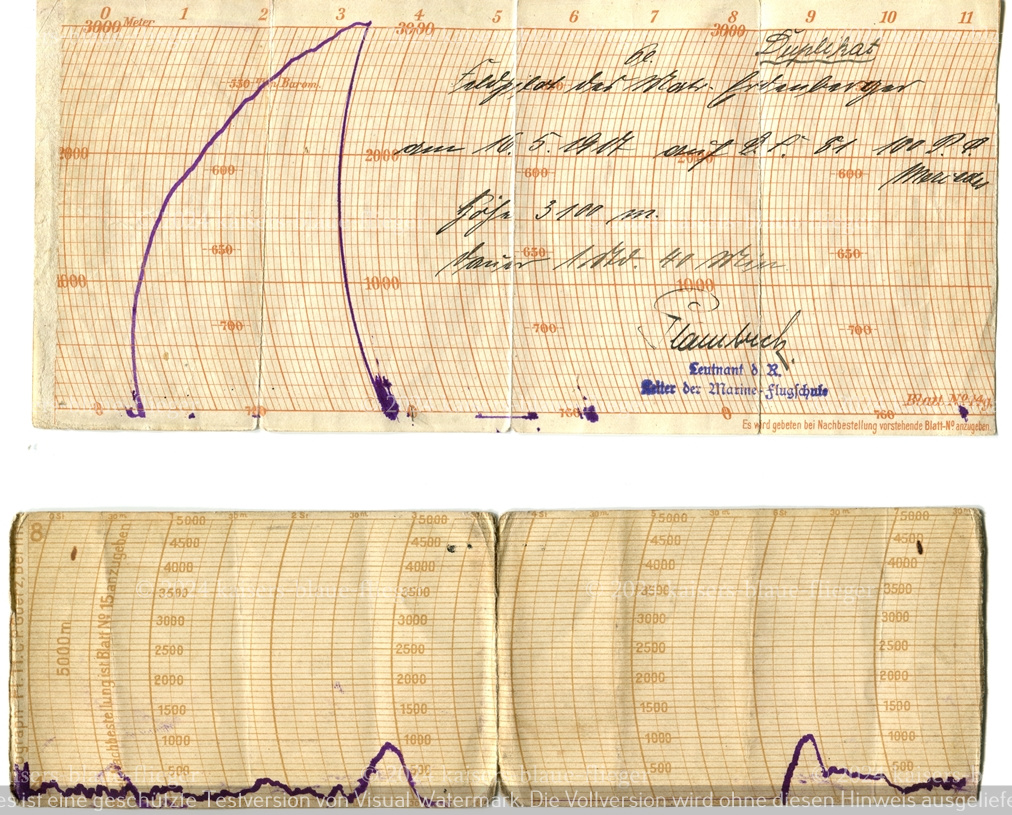 0 1 2 3 4 5 6 7 8 9 10 11
3000 Meter 3000 3000
Duplikat
550 m/m Barom.
Feldpilot des Matr.
2000 2000 2000
am 16. 5. 1917 auf 81 100 P.S.
600 600 600
Mercedes
Höhe 3100 m.
650 650 650
Dauer 1 Std. 40 Min.
1000 1000 1000
700 700 700
Leutnant d. R.
Leiter der Marine-Flugschule
0 760 760 0 760
Blatt Nº 14g.
Es wird gebeten bei Nachbestellung vorstehende Blatt-Nº anzugeben.
8
5000 5000 5000 5000
4500 4500 4500 4500
4000 4000 4000 4000
3500 3500 3500 3500
3000 3000 3000 3000
2500 2500 2500 2500
2000 2000 2000 2000
1500 1500 1500 1500
1000 1000 1000 1000
500 500 500 500
5000m
Nachbestellung ist Blatt Nº 15 anzugeben
© 2024 kaisers blaue flieger © 2024 kaisers blaue flieger
es ist eine geschützte Testversion von Visual Watermark. Die Vollversion wird ohne diesen Hinweis ausgeliefe